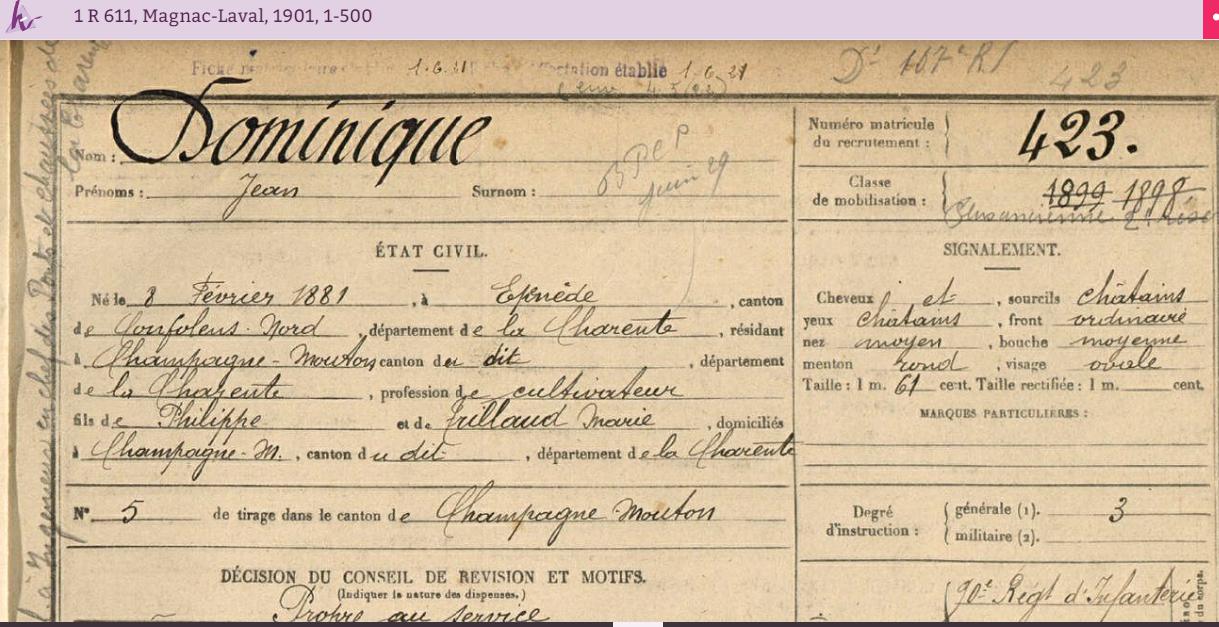 1 R 611, Magnac-Laval, 1901, 1-500
Fiche 1.6.21 établie 1.6.21
Dt 107e RI
423
Dominique
Nom :
Prénoms : Jean Surnom :
juin 29
Numéro matricule
du recrutement : 423.
Classe
de mobilisation : 1899 1898
ÉTAT CIVIL.
Né le 8 Février 1881, à Epenède, canton
de Confolens-Nord, département de la Charente, résidant
à Champagne-Mouton, canton du dit, département
de la Charente, profession de cultivateur
fils de Philippe et de Marie, domiciliés
à Champagne-M., canton du dit, département de la Charente
N° 5 de tirage dans le canton de Champagne Mouton
DÉCISION DU CONSEIL DE REVISION ET MOTIFS.
(Indiquer la nature des dispenses.)
Propre au service
SIGNALEMENT.
Cheveux et, sourcils châtains
yeux châtains, front ordinaire
nez moyen, bouche moyenne
menton rond, visage ovale
Taille : 1 m. 61 cent. Taille rectifiée : 1 m. cent.
MARQUES PARTICULIÈRES :
Degré
d'instruction :
générale (1). 3
militaire (2).
90e Régt d'Infanterie
du corps.